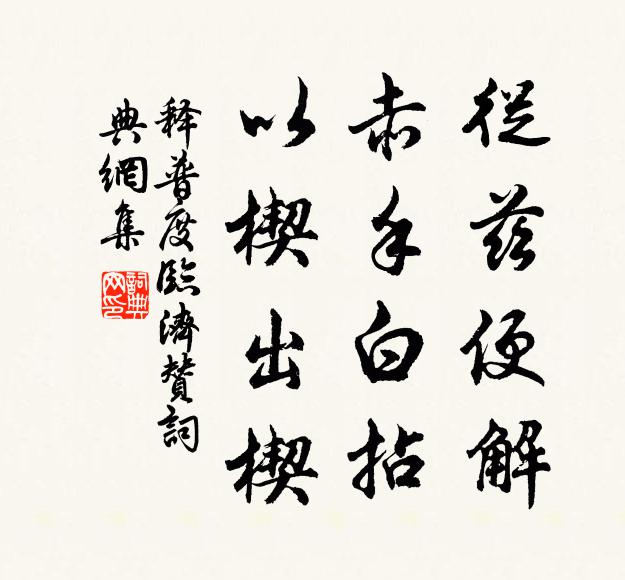 從茲便解
赤手白拈
以楔出楔
释普度臨濟赞詞
典網集
詞典网印